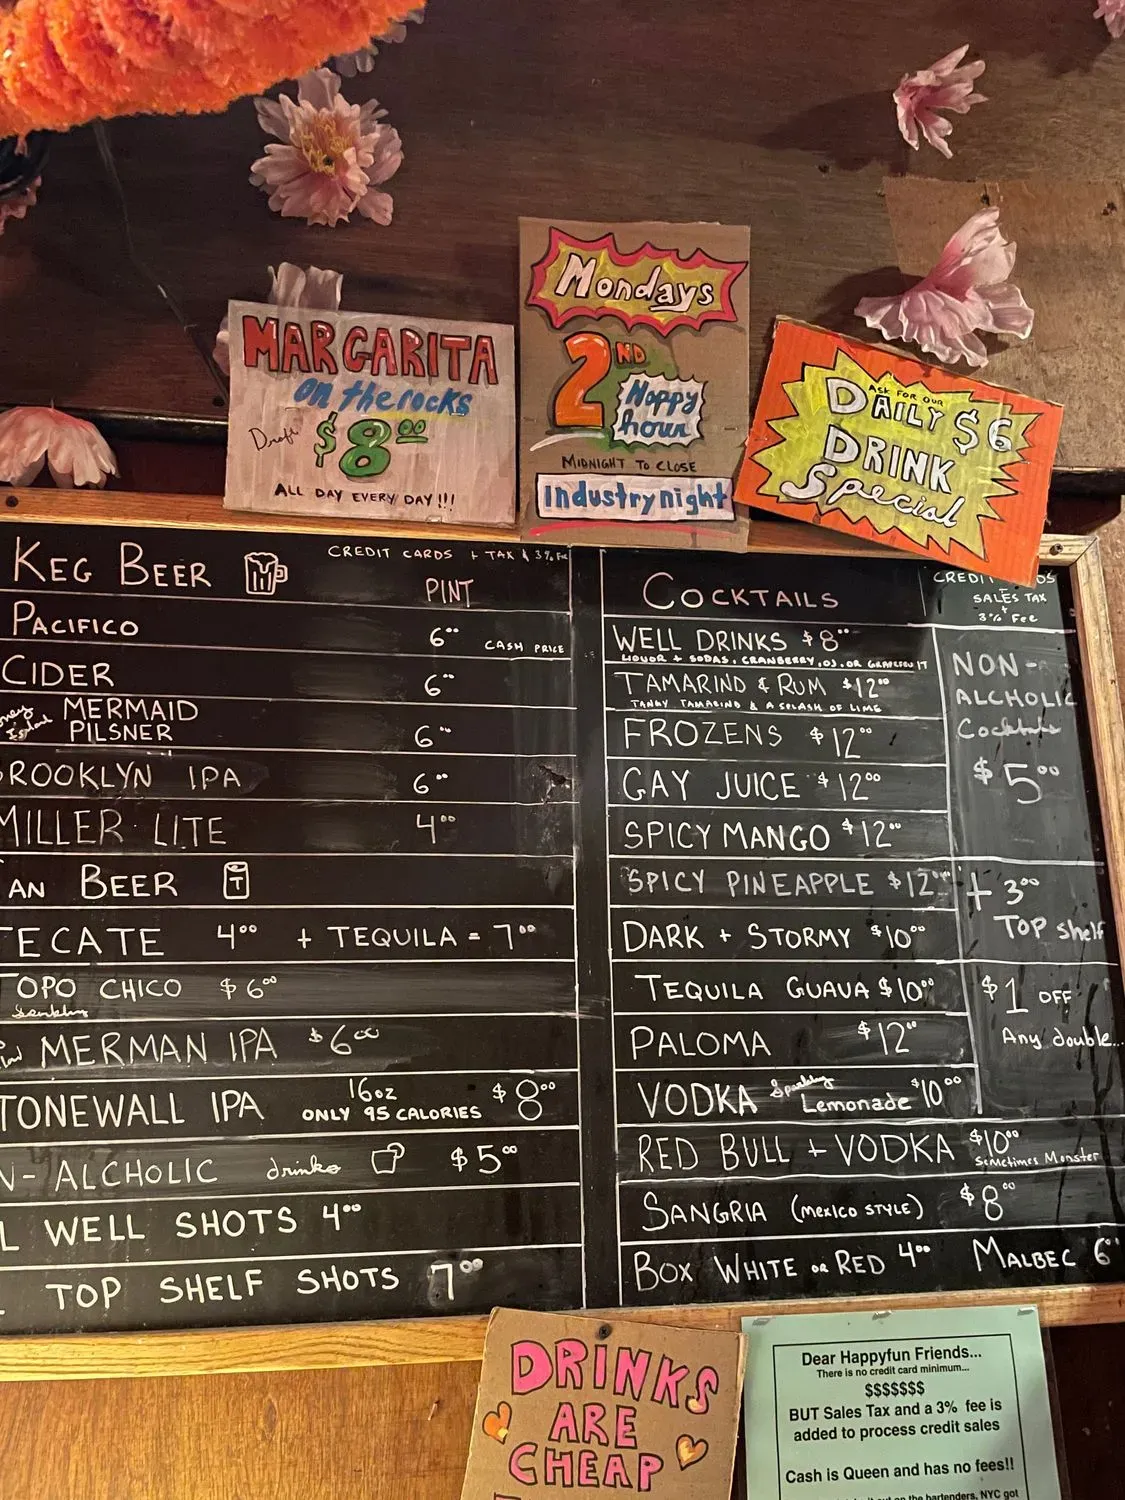 MARGARITA
on the rocks
Draft $8.00
ALL DAY EVERY DAY!!!
Mondays
2ND
Happy
hour
MIDNIGHT TO CLOSE
Industry night
ASK FOR OUR
DAILY $6
DRINK
Special
KEG BEER
CREDIT CARDS + TAX & 3% Fee
PINT
PACIFICO 6.00 CASH PRICE
CIDER 6.00
MERMAID
PILSNER 6.00
ROOKLYN IPA 6.00
MILLER LITE 4.00
AN BEER T
TECATE 4.00 + TEQUILA = 7.00
TOPO CHICO $6.00
MERMAN IPA $6.00
TONEWALL IPA 16oz $8.00
ONLY 95 CALORIES
N-ALCHOLIC drinks $5.00
L WELL SHOTS 4.00
TOP SHELF SHOTS 7.00
COCKTAILS
SALES TAX
+
3% Fee
WELL DRINKS $8.00
LIQUOR + SODAS, CRANBERRY, OJ, OR GRAPEFRUIT
TAMARIND & RUM $12.00
TANGY TAMARIND & A SPLASH OF LIME
FROZENS $12.00
GAY JUICE $12.00
SPICY MANGO $12.00
SPICY PINEAPPLE $12.00
DARK + STORMY $10.00
TEQUILA GUAVA $10.00
PALOMA $12.00
VODKA Sparkling Lemonade $10.00
RED BULL + VODKA $10.00
Sometimes Monster
SANGRIA (MEXICO STYLE) $8.00
BOX WHITE OR RED 4.00 MALBEC 6.00
NON-
ALCHOLIC
Cocktails
$5.00
+ 3.00
TOP shelf
$1 OFF
Any double...
DRINKS
ARE
CHEAP
Dear Happyfun Friends...
There is no credit card minimum...
$$$$$$$
BUT Sales Tax and a 3% fee is
added to process credit sales
Cash is Queen and has no fees!!
on the bartenders, NYC got